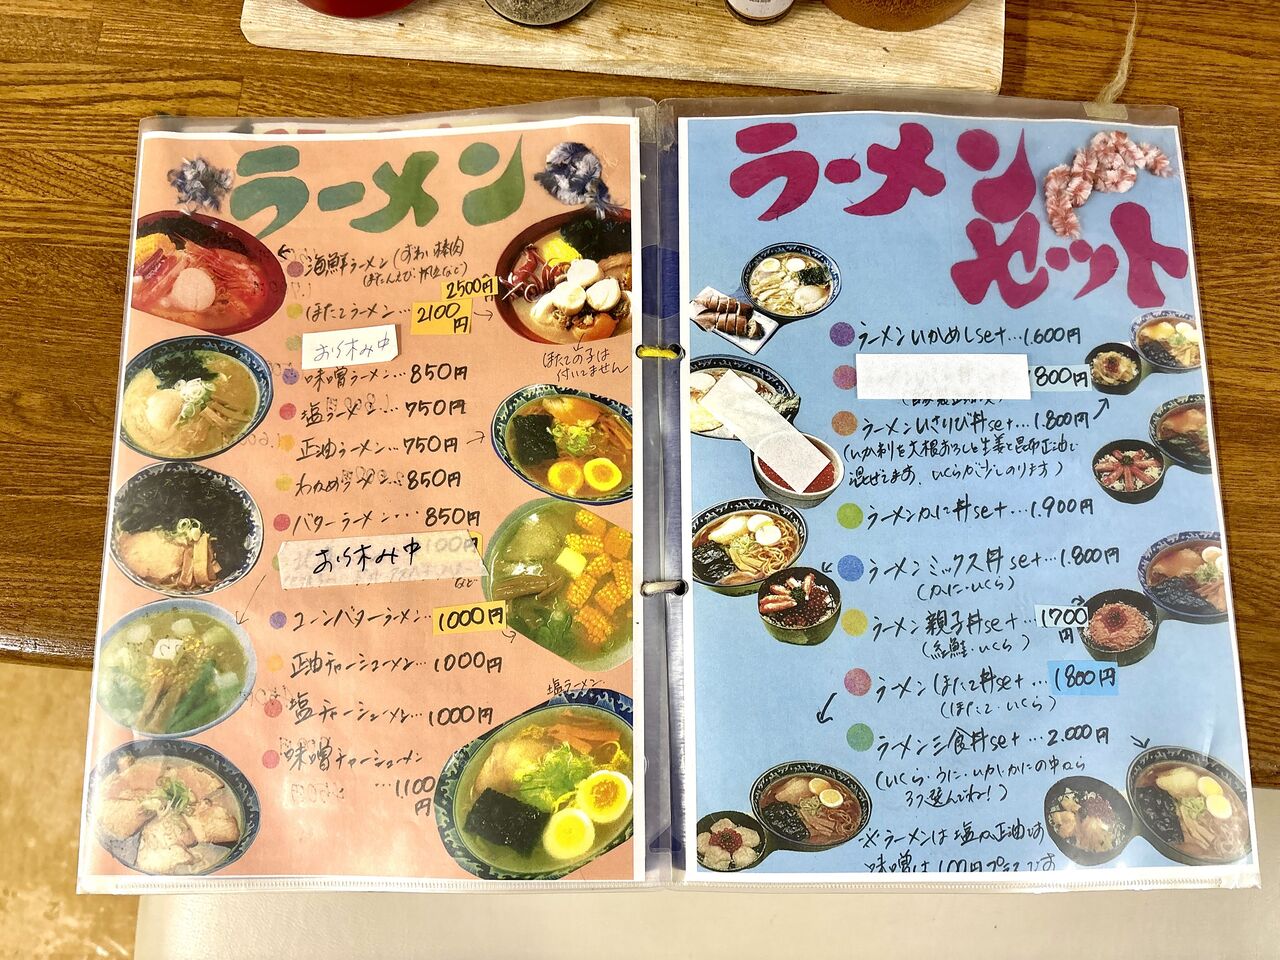 ラーメン
海鮮ラーメン(ずわい棒肉
ぼたんえび 帆立など)
2500円
ほたてラーメン… 2100円
ほたての子は
付いてません
お休み中
味噌ラーメン…850円
塩ラーメン…750円
正油ラーメン…750円
わかめラーメン…850円
バターラーメン…850円
お休み中
など
コーンバターラーメン… 1000円
正油チャーシューメン…1000円
塩チャーシューメン…1000円
味噌チャーシューメン
…1100円
塩ラーメン
ラーメン
セット
ラーメンいかめしset…1.600円
800円
ラーメンいさりび丼set…1.800円
(いか刺を大根おろしと生姜と昆布正油で
混ぜてます、いくらが少しのります)
ラーメンかに丼set…1.900円
ラーメンミックス丼set…1.800円
(かに・いくら)
ラーメン親子丼set… 1700円
(紅鮭・いくら)
ラーメンほたて丼set… 1800円
(ほたて・いくら)
ラーメン三食丼set…2.000円
(いくら・うに・いか・かにの中から
3つ選んでね!)
※ラーメンは塩か正油です
味噌は100円プラスです